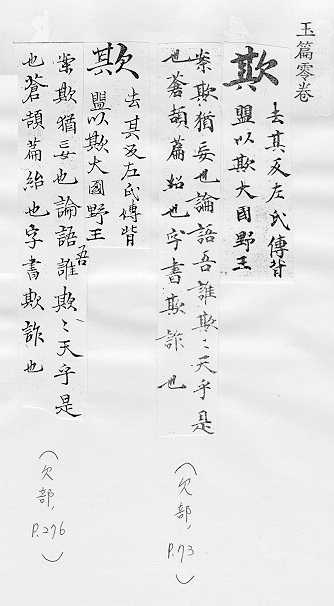 玉篇零卷
欺
去其反左氏傳背
盟以欺大國野王
案欺猶妄也論語吾誰欺〻天乎是
也蒼頡篇紿也字書欺詐也
(欠部, P.73)
欺
去其反左氏傳背
盟以欺大國野王
案欺猶妄也論語吾誰欺〻天乎是
也蒼頡篇紿也字書欺詐也
(欠部, P.276)